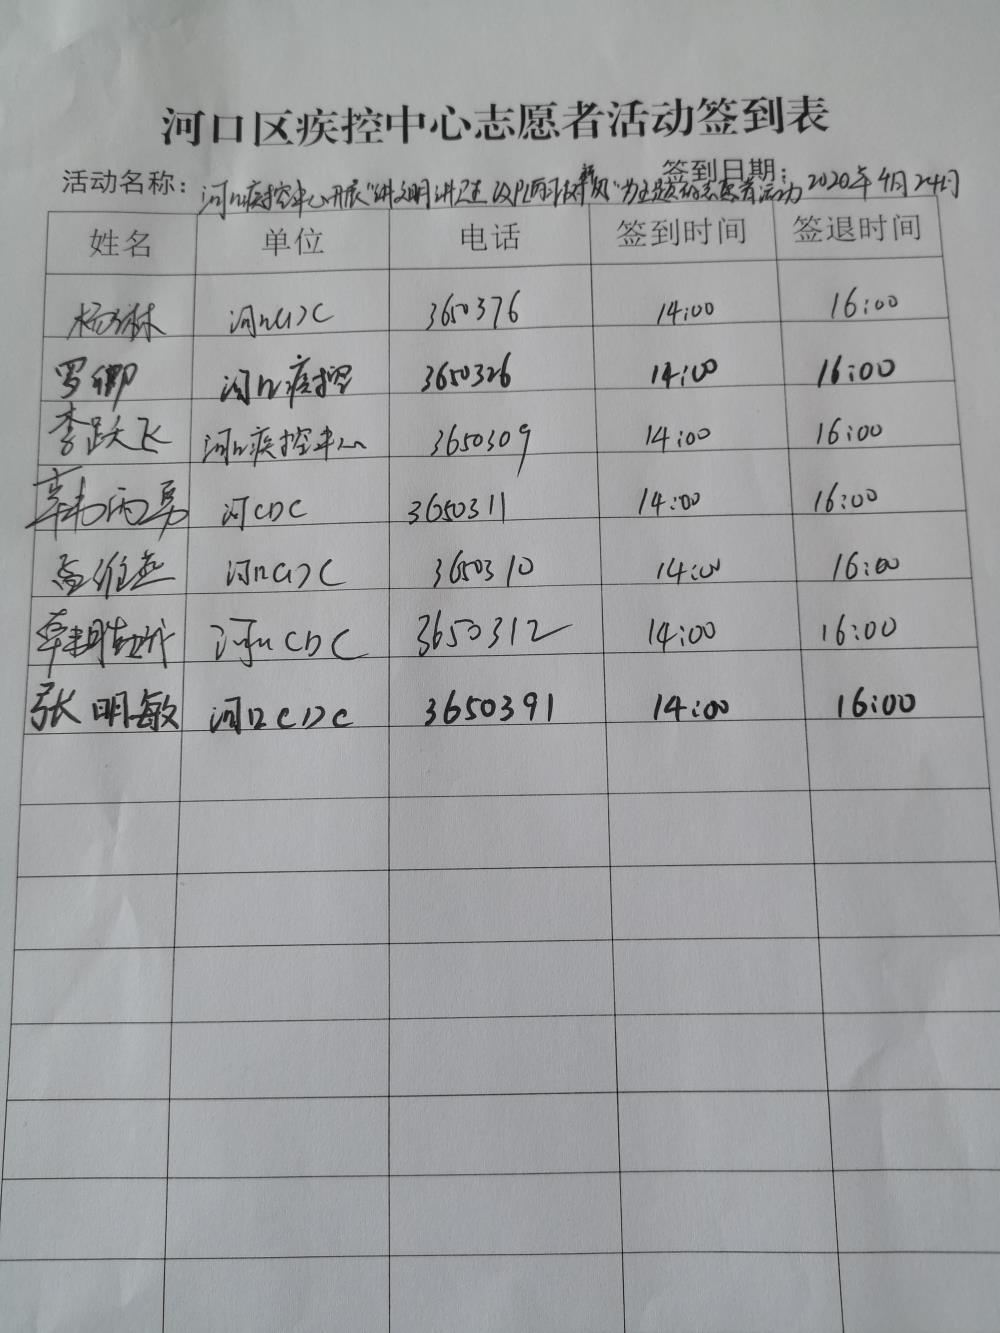 河口区疾控中心志愿者活动签到表
活动名称: 河口疾控中心开展"讲文明讲卫生 改陋习树新风"为主题的志愿者活动 签到日期: 2020年4月24日
姓名 单位 电话 签到时间 签退时间
杨琳 河口CDC 3650376 14:00 16:00
罗卿 河口疾控 3650326 14:00 16:00
李跃飞 河口疾控中心 3650309 14:00 16:00
韩丙勇 河CDC 3650311 14:00 16:00
孟维燕 河口CDC 3650310 14:00 16:00
河口CDC 3650312 14:00 16:00
张明敏 河口CDC 3650391 14:00 16:00